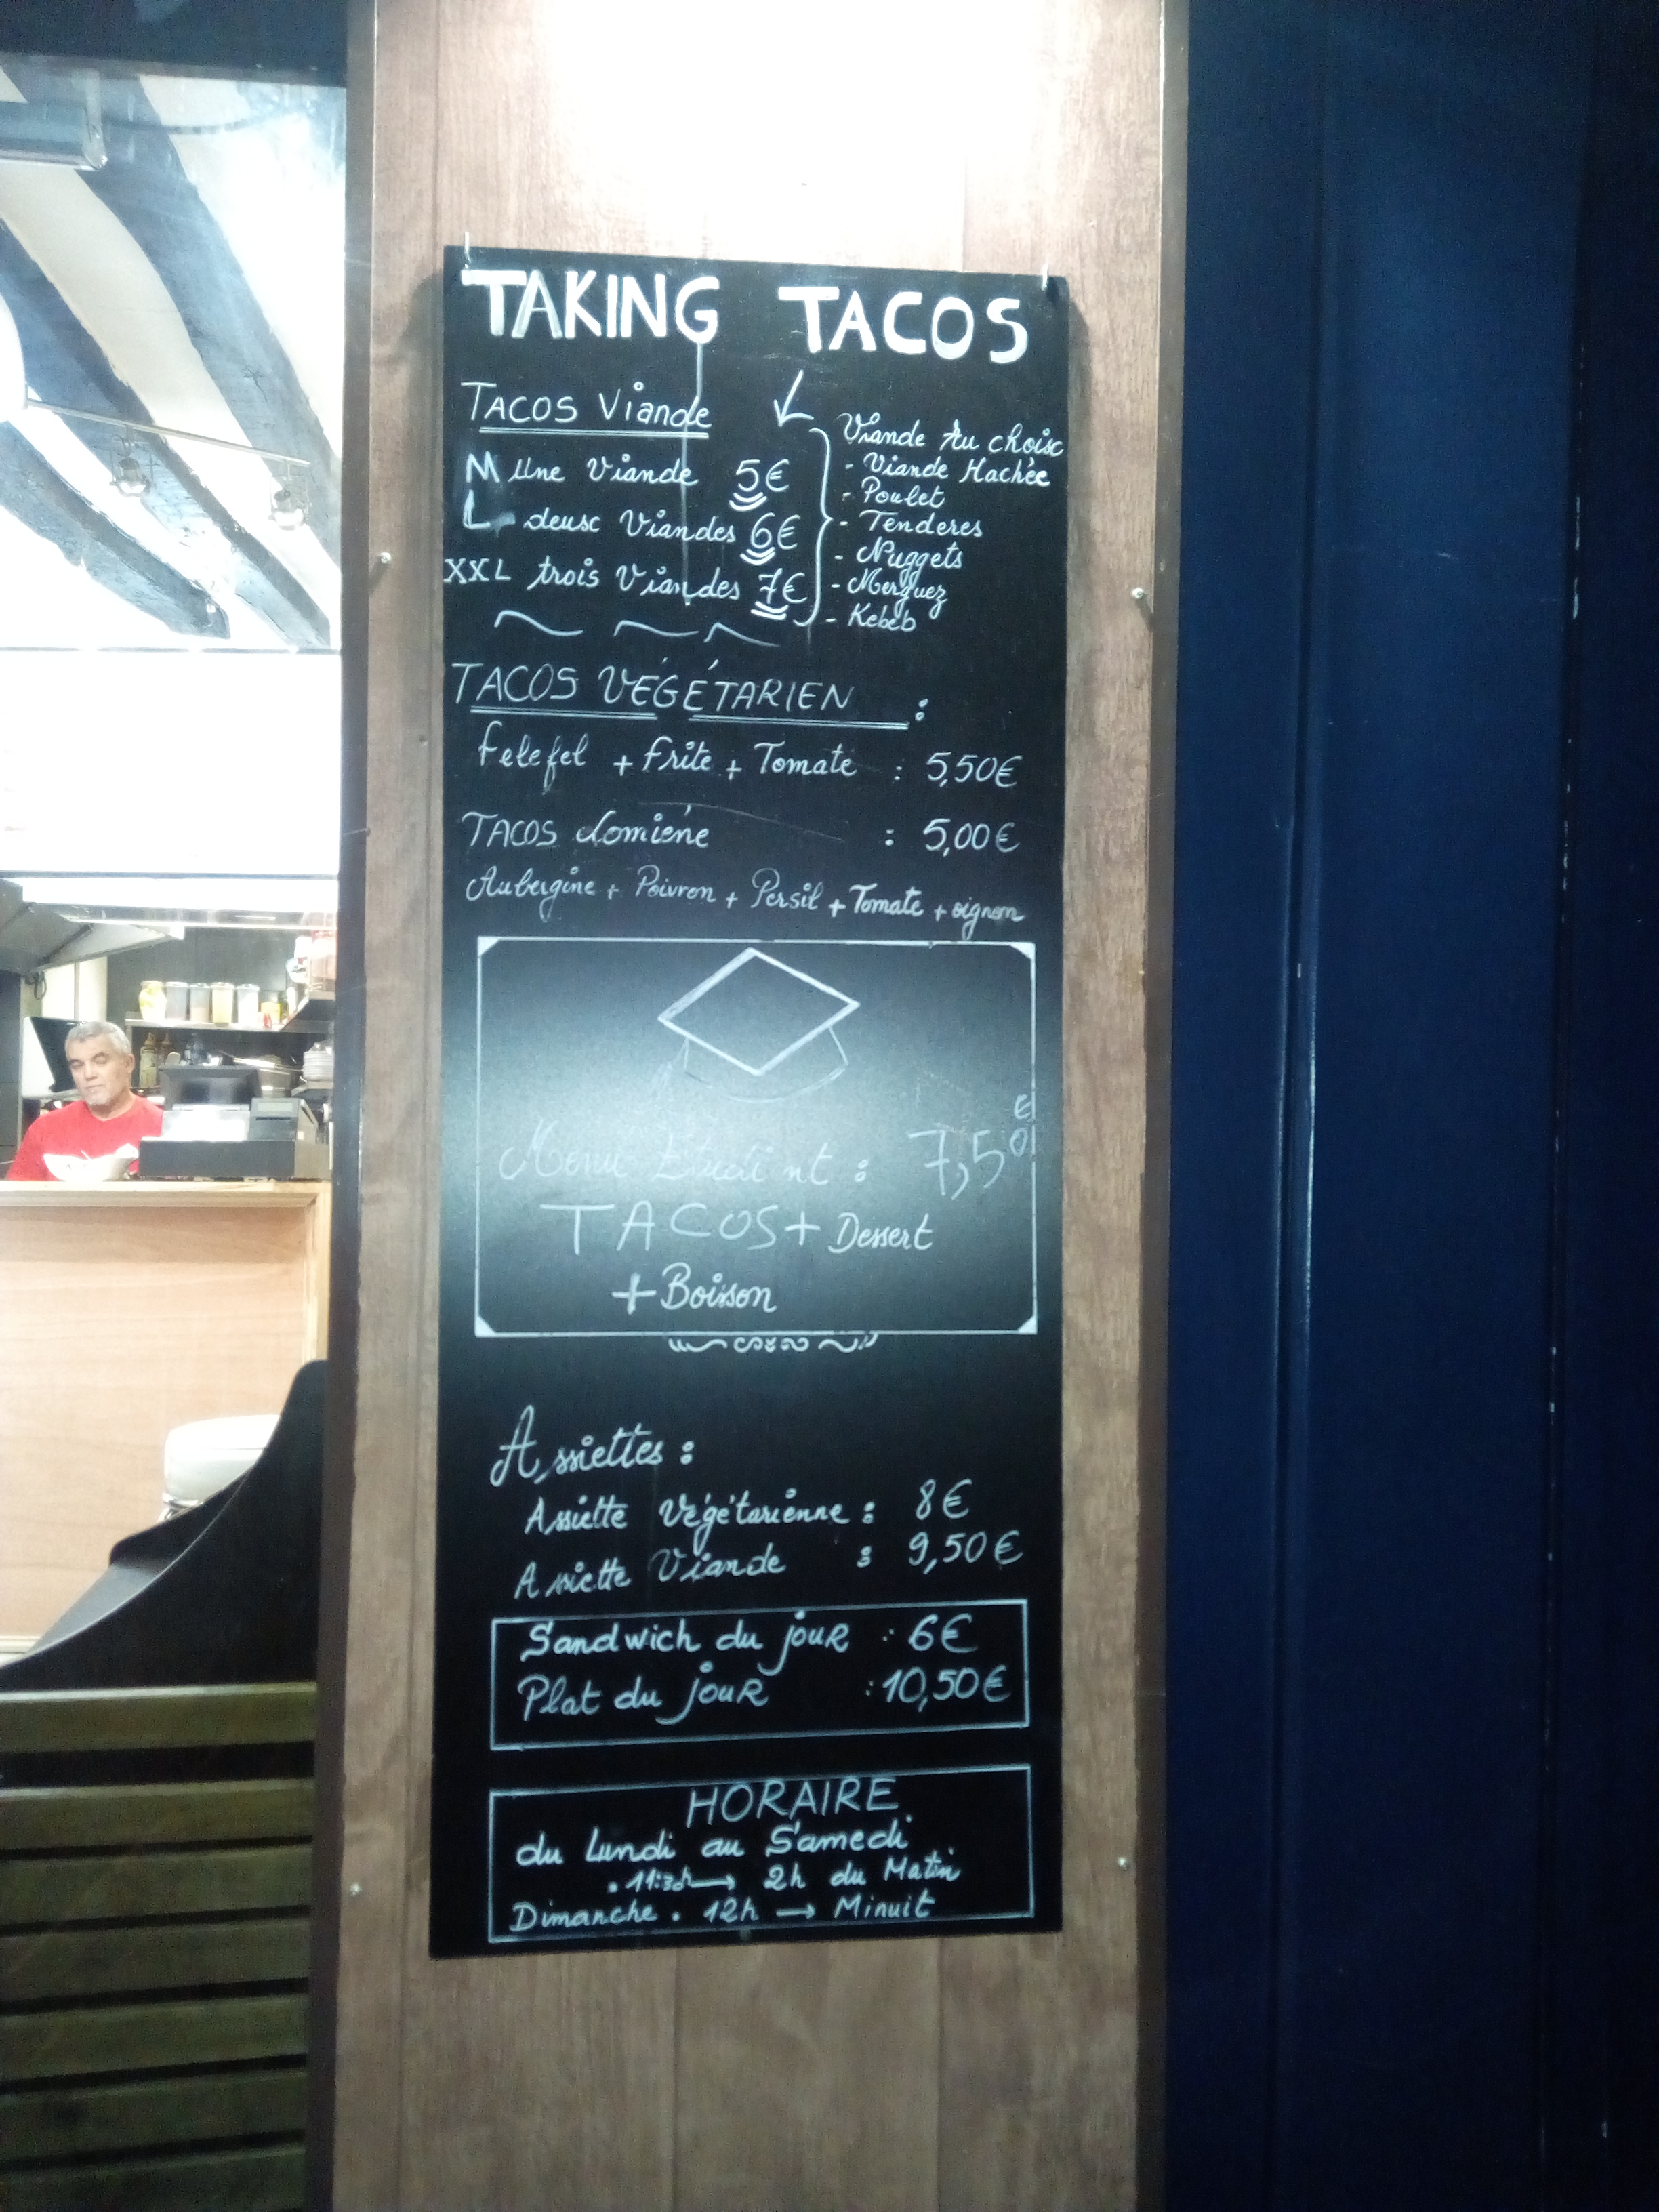 TAKING TACOS
TACOS Viande
M Une Viande 5€
L deux Viandes 6€
XXL trois Viandes 7€
Viande Au choix
- Viande Hachée
- Poulet
- Tenderes
- Nuggets
- Merguez
- Kebeb
TACOS VÉGÉTARIEN :
Felefel + Frite + Tomate : 5,50€
TACOS Lomiéne : 5,00€
Aubergine + Poivron + Persil + Tomate + oignon
Menu : 7,50€
TACOS + Dessert
+ Boisson
Assiettes :
Assiette Végétarienne : 8€
Assiette Viande : 9,50€
Sandwich du jour : 6€
Plat du jour : 10,50€
HORAIRE
du Lundi au Samedi
. 11:30h → 2h du Matin
Dimanche . 12h → Minuit